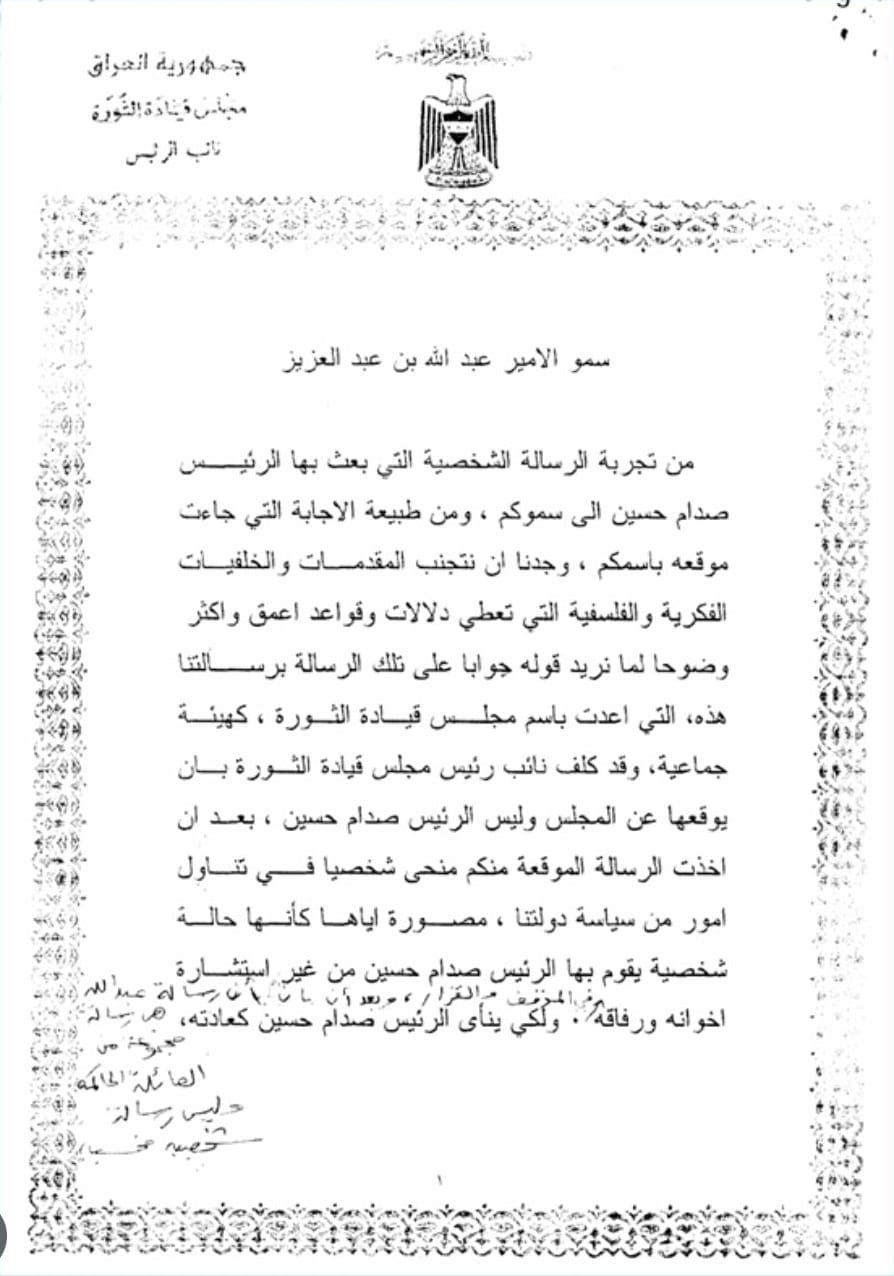 جمهورية العراق
مجلس قيادة الثورة
نائب الرئيس
سمو الامير عبد الله بن عبد العزيز
من تجربة الرسالة الشخصية التي بعث بها الرئيس
صدام حسين الى سموكم ، ومن طبيعة الاجابة التي جاءت
موقعه باسمكم ، وجدنا ان نتجنب المقدمات والخلفيات
الفكرية والفلسفية التي تعطي دلالات وقواعد اعمق واكثر
وضوحا لما نريد قوله جوابا على تلك الرسالة برسالتنا
هذه، التي اعدت باسم مجلس قيادة الثورة ، كهيئة
جماعية، وقد كلف نائب رئيس مجلس قيادة الثورة بان
يوقعها عن المجلس وليس الرئيس صدام حسين ، بعد ان
اخذت الرسالة الموقعة منكم منحى شخصيا في تناول
امور من سياسة دولتنا ، مصورة اياها كأنها حالة
شخصية يقوم بها الرئيس صدام حسين من غير استشارة
في الموقف والقرار ، وبعد أن بان أن رسالة عبدالله
اخوانه ورفاقه . ولكي ينأى الرئيس صدام حسين كعادته،
هي رسالة
مجموعة من
العائلة الحاكمة
وليس رسالة
شخصية
١